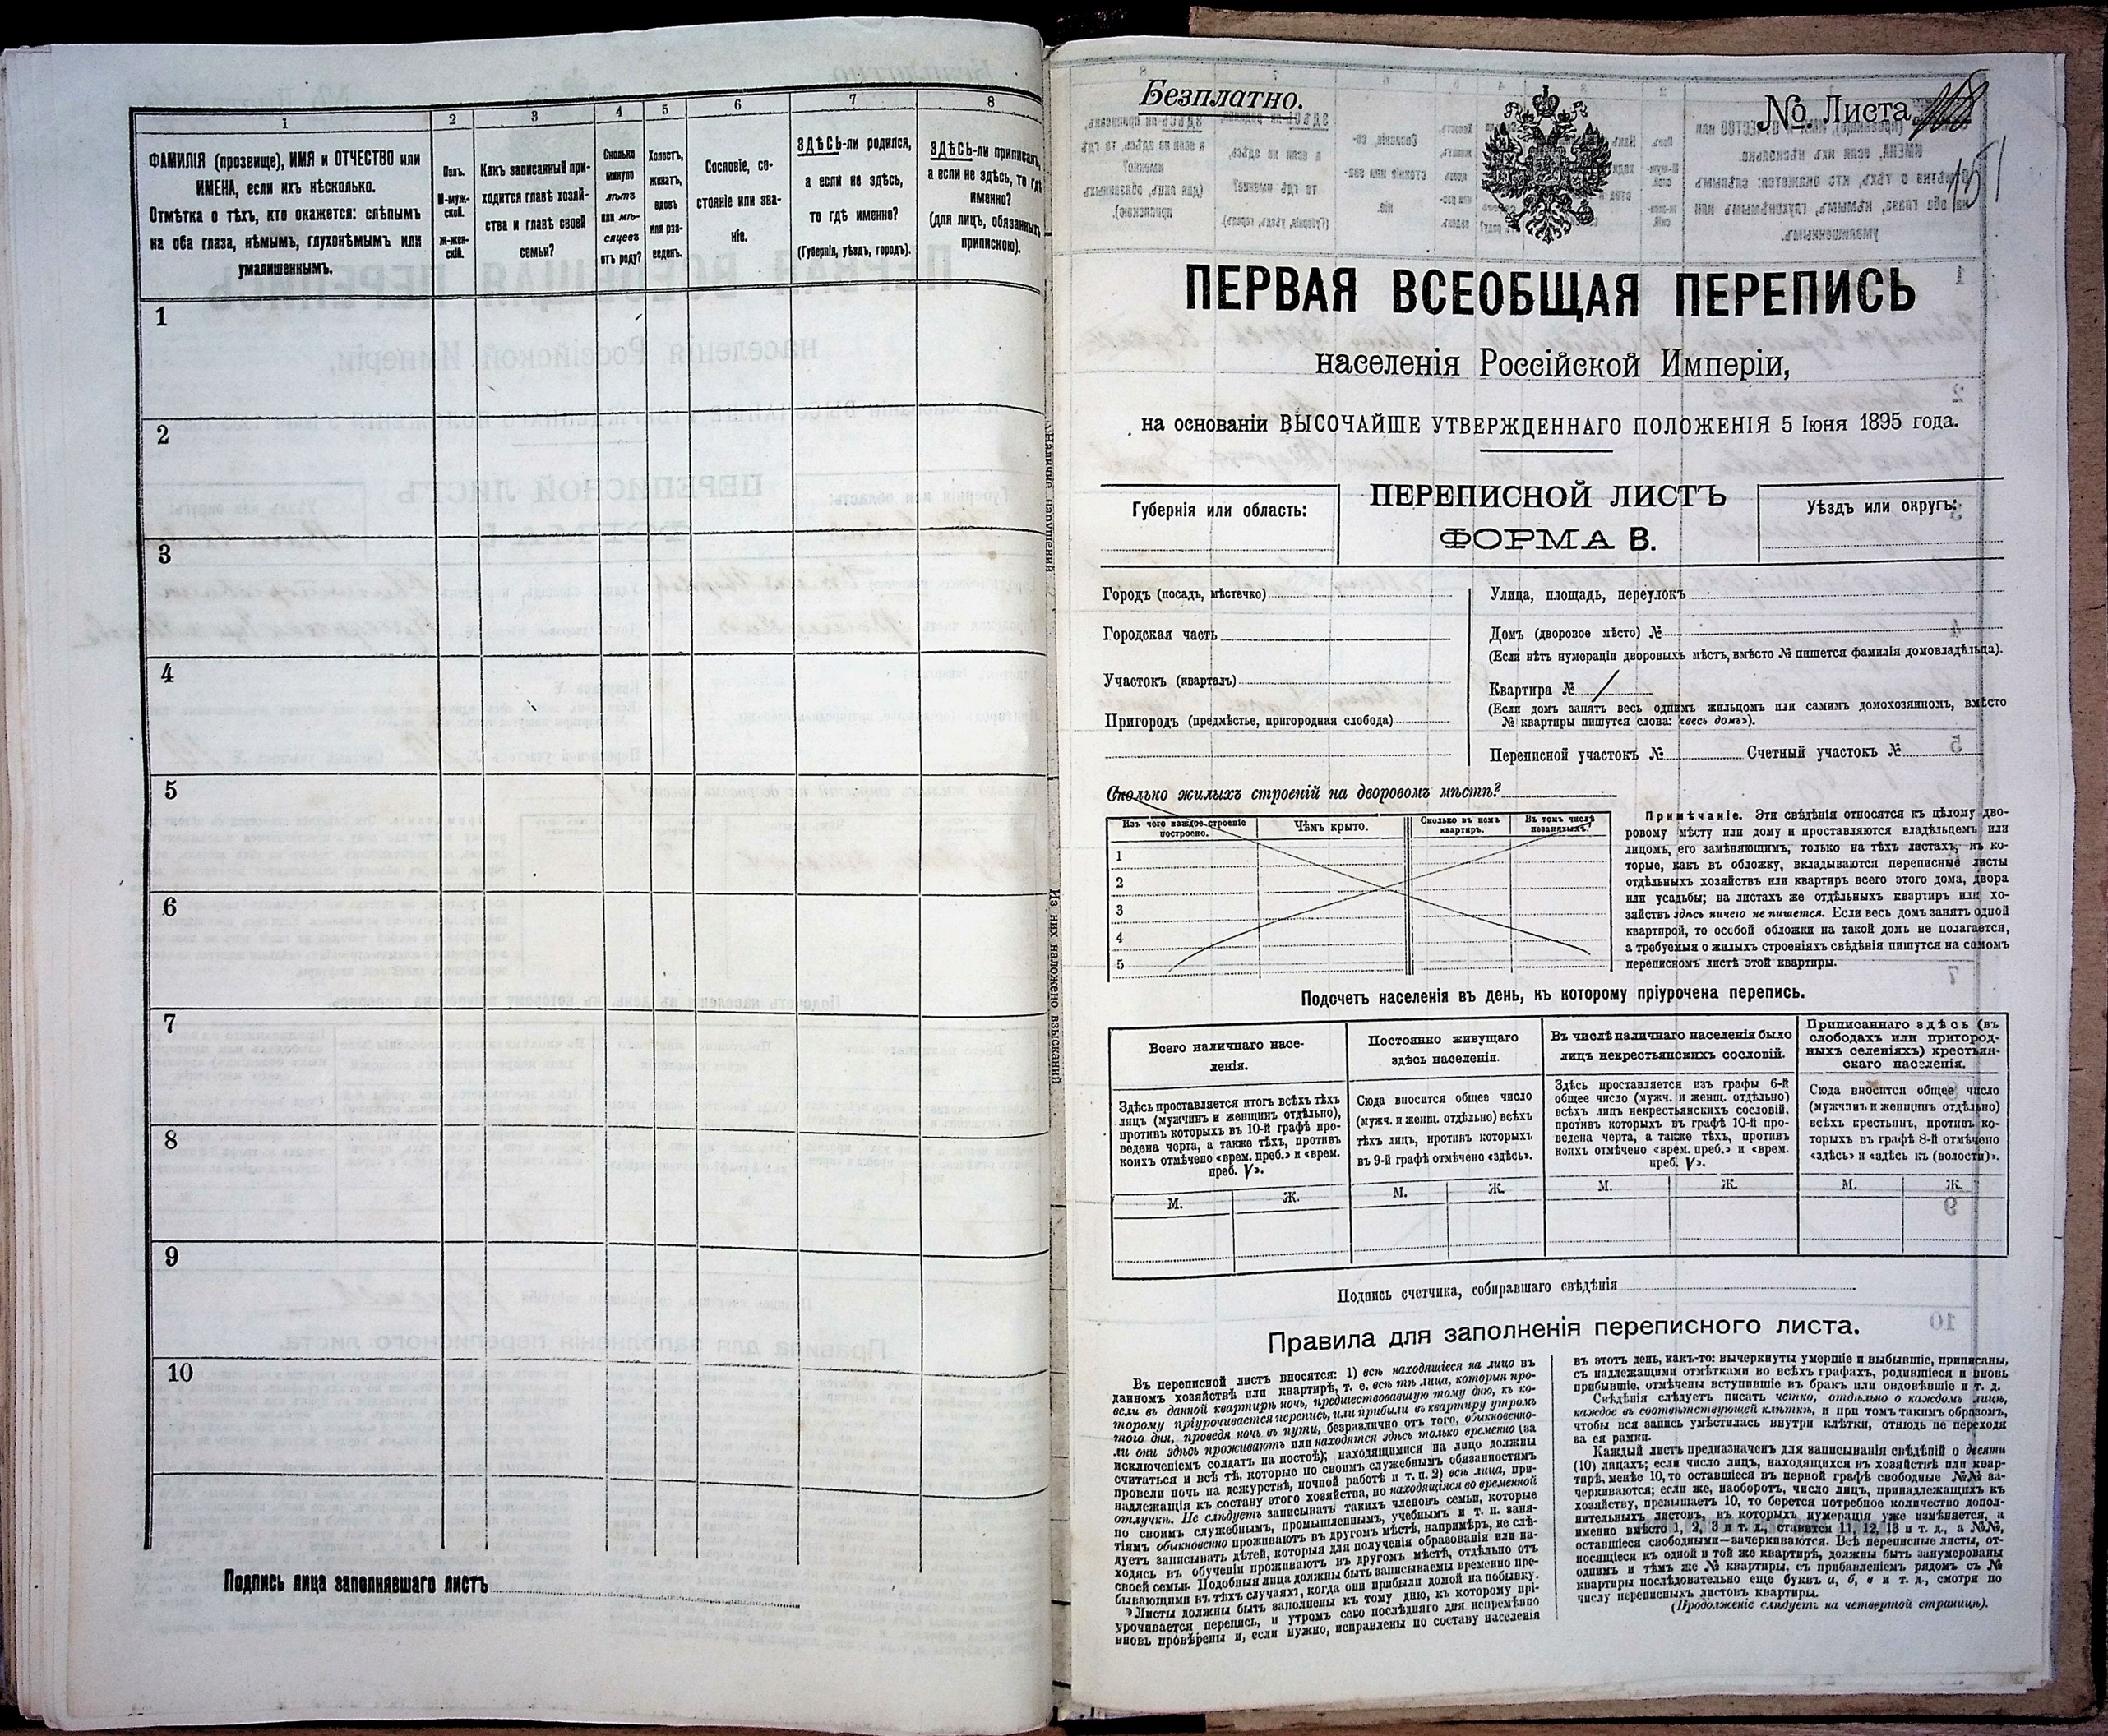 1
2
3
4
5
6
7
8
ФАМИЛІЯ (прозвище), ИМЯ и ОТЧЕСТВО или
ИМЕНА, если ихъ нѣсколько.
Отмѣтка о тѣхъ, кто окажется: слѣпымъ
на оба глаза, нѣмымъ, глухонѣмымъ или
умалишеннымъ.
Полъ.
М-муж-
ской.
ж-жен-
скій.
Какъ записанный при-
ходится главѣ хозяй-
ства и главѣ своей
семьи?
Сколько
минуло
лѣтъ
или мѣ-
сяцевъ
отъ роду?
Холостъ,
женатъ,
вдовъ
или раз-
веденъ.
Сословіе, со-
стояніе или зва-
ніе.
ЗДѢСЬ-ли родился,
а если не здѣсь,
то гдѣ именно?
(Губернія, уѣздъ, городъ).
ЗДѢСЬ-ли приписанъ,
а если не здѣсь, то гдѣ
именно?
(для лицъ, обязанныхъ
припискою).
1
2
3
4
5
6
7
8
9
10
Подпись лица заполнявшаго листъ
Из них наложено взысканий
Безплатно.
№ Листа
151
ПЕРВАЯ ВСЕОБЩАЯ ПЕРЕПИСЬ
населенія Россійской Имперіи,
на основаніи ВЫСОЧАЙШЕ УТВЕРЖДЕННАГО ПОЛОЖЕНІЯ 5 Іюня 1895 года.
Губернія или область:
ПЕРЕПИСНОЙ ЛИСТЪ
ФОРМА В.
Уѣздъ или округъ:
Городъ (посадъ, мѣстечко)
Городская часть
Участокъ (кварталъ)
Пригородъ (предмѣстье, пригородная слобода)
Улица, площадь, переулокъ
Домъ (дворовое мѣсто) №
(Если нѣтъ нумераціи дворовыхъ мѣстъ, вмѣсто № пишется фамилія домовладѣльца).
Квартира №
(Если домъ занятъ весь однимъ жильцомъ или самимъ домохозяиномъ, вмѣсто
№ квартиры пишутся слова: «весь домъ»).
Переписной участокъ № Счетный участокъ №
Сколько жилыхъ строеній на дворовомъ мѣстѣ?
Изъ чего каждое строеніе
построено.
Чѣмъ крыто.
Сколько въ немъ
квартиръ.
Въ томъ числѣ
незанятыхъ.
1
2
3
4
5
Примѣчаніе. Эти свѣдѣнія относятся къ цѣлому дво-
ровому мѣсту или дому и проставляются владѣльцемъ или
лицомъ, его замѣняющимъ, только на тѣхъ листахъ, въ ко-
торые, какъ въ обложку, вкладываются переписные листы
отдѣльныхъ хозяйствъ или квартиръ всего этого дома, двора
или усадьбы; на листахъ же отдѣльныхъ квартиръ или хо-
зяйствъ здѣсь ничего не пишется. Если весь домъ занятъ одной
квартирой, то особой обложки на такой домъ не полагается,
а требуемыя о жилыхъ строеніяхъ свѣдѣнія пишутся на самомъ
переписномъ листѣ этой квартиры.
Подсчетъ населенія въ день, къ которому пріурочена перепись.
Всего наличнаго насе-
ленія.
Здѣсь проставляется итогъ всѣхъ тѣхъ
лицъ (мужчинъ и женщинъ отдѣльно),
противъ которыхъ въ 10-й графѣ про-
ведена черта, а также тѣхъ, противъ
коихъ отмѣчено «врем. преб.» и «врем.
преб. V».
М.
Ж.
Постоянно живущаго
здѣсь населенія.
Сюда вносится общее число
(мужч. и женщ. отдѣльно) всѣхъ
тѣхъ лицъ, противъ которыхъ
въ 9-й графѣ отмѣчено «здѣсь».
М.
Ж.
Въ числѣ наличнаго населенія было
лицъ некрестьянскихъ сословій.
Здѣсь проставляется изъ графы 6-й
общее число (мужч. и женщ. отдѣльно)
всѣхъ лицъ некрестьянскихъ сословій,
противъ которыхъ въ графѣ 10-й про-
ведена черта, а также тѣхъ, противъ
коихъ отмѣчено «врем. преб.» и «врем.
преб. V».
М.
Ж.
Приписаннаго здѣсь (въ
слободахъ или пригород-
ныхъ селеніяхъ) крестьян-
скаго населенія.
Сюда вносится общее число
(мужчинъ и женщинъ отдѣльно)
всѣхъ крестьянъ, противъ ко-
торыхъ въ графѣ 8-й отмѣчено
«здѣсь» и «здѣсь къ (волости)».
М.
Ж.
Подпись счетчика, собиравшаго свѣдѣнія
Правила для заполненія переписного листа.
Въ переписной листъ вносятся: 1) всѣ находящіеся на лицо въ
данномъ хозяйствѣ или квартирѣ, т. е. всѣ тѣ лица, которыя про-
вели въ данной квартирѣ ночь, предшествовавшую тому дню, къ ко-
торому пріурочивается перепись, или прибыли въ квартиру утромъ
того дня, проведя ночь въ пути, безразлично отъ того, обыкновенно-
ли они здѣсь проживаютъ или находятся здѣсь только временно (за
исключеніемъ солдатъ на постоѣ); находящимися на лицо должны
считаться и всѣ тѣ, которые по своимъ служебнымъ обязанностямъ
провели ночь на дежурствѣ, ночной работѣ и т. п. 2) всѣ лица, при-
надлежащія къ составу этого хозяйства, но находящіяся во временной
отлучкѣ. Не слѣдуетъ записывать такихъ членовъ семьи, которые
по своимъ служебнымъ, промышленнымъ, учебнымъ и т. п. заня-
тіямъ обыкновенно проживаютъ въ другомъ мѣстѣ, напримѣръ, не слѣ-
дуетъ записывать дѣтей, которыя для полученія образованія или на-
ходясь въ обученіи проживаютъ въ другомъ мѣстѣ, отдѣльно отъ
своей семьи. Подобныя лица должны быть записываемы временно пре-
бывающими въ тѣхъ случаяхъ, когда они прибыли домой на побывку.
Листы должны быть заполнены къ тому дню, къ которому прі-
урочивается перепись, и утромъ сего послѣдняго дня непремѣнно
вновь провѣрены и, если нужно, исправлены по составу населенія
въ этотъ день, какъ-то: вычеркнуты умершіе и выбывшіе, приписаны,
съ надлежащими отмѣтками во всѣхъ графахъ, родившіеся и вновь
прибывшіе, отмѣчены вступившіе въ бракъ или овдовѣвшіе и т. д.
Свѣдѣнія слѣдуетъ писать четко, отдѣльно о каждомъ лицѣ,
каждое въ соотвѣтствующей клѣткѣ, и при томъ такимъ образомъ,
чтобы вся запись умѣстилась внутри клѣтки, отнюдь не переходя
за ея рамки.
Каждый листъ предназначенъ для записыванія свѣдѣній о десяти
(10) лицахъ; если число лицъ, находящихся въ хозяйствѣ или квар-
тирѣ, менѣе 10, то оставшіеся въ первой графѣ свободные №№ за-
черкиваются; если же, наоборотъ, число лицъ, принадлежащихъ къ
хозяйству, превышаетъ 10, то берется потребное количество допол-
нительныхъ листовъ, въ которыхъ нумерація уже измѣняется, а
именно вмѣсто 1, 2, 3 и т. д., ставится 11, 12, 13 и т. д., а №№,
оставшіеся свободными—зачеркиваются. Всѣ переписные листы, от-
носящіеся къ одной и той же квартирѣ, должны быть занумерованы
однимъ и тѣмъ же № квартиры, съ прибавленіемъ рядомъ съ №
квартиры послѣдовательно еще буквъ а, б, в и т. д., смотря по
числу переписныхъ листовъ квартиры.
(Продолженіе слѣдуетъ на четвертой страницѣ).